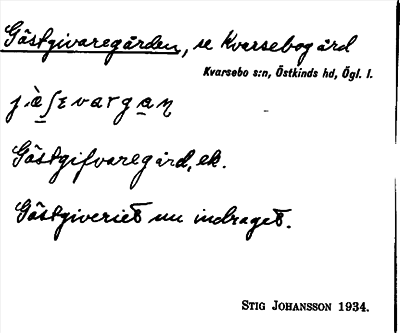 Gästgivaregården, se Kvarsebogård
Kvarsebo s:n, Östkinds hd, Ögl. l.
Gästgifvaregård, ek.
Gästgiveriet nu indraget.
STIG JOHANSSON 1934.